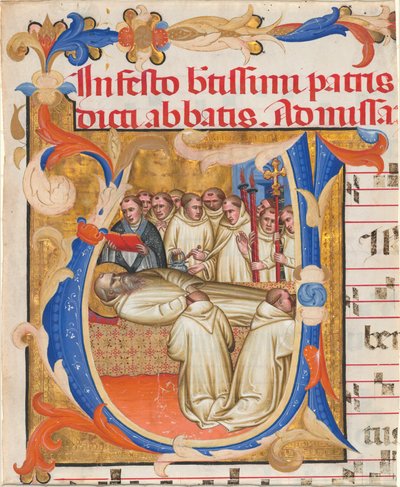 In festo b̄tissimi patris
dicti abbatis. Ad missa